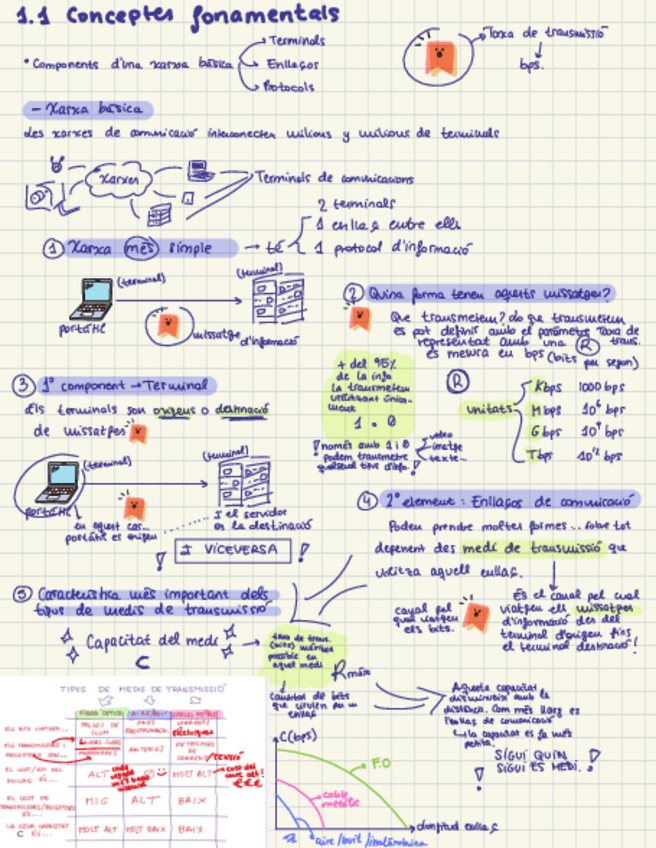 1.1 Conceptes fonamentals
• Components d'una xarxa bàsica
Terminals
Enllaços
Protocols
Taxa de transmissió
bps.
- Xarxa bàsica
Les xarxes de comunicació interconecten milions y milions de terminals
Xarxes
Terminals de comunicacions
1 Xarxa més simple → té
2 terminals
1 enllaç entre ells
1 protocol d'informació
(terminal)
(terminal)
portàtil
missatge d'informació
2 Quina forma tenen aquests missatges?
Que transmetem? do que transmetem
es pot definir amb el paràmetre Taxa de
representat amb una R trans.
es mesura en bps (bits per segon)
+ del 95%
de la info
la transmetem
utilitzant única-
ment
1 . 0
! només amb 1 i 0
podem transmetre
qualsevol tipus d'info.
video
imatge
texte...
R
unitats
Kbps 1000 bps
Mbps 10⁶ bps
Gbps 10⁹ bps
Tbps 10¹² bps
3 1º component → Terminal
Els terminals son origens o destinació
de missatges
(terminal)
(terminal)
portàtil
en aquest cas...
portàtil es origen
I el servidor
es la destinació
! I VICEVERSA !
4 2º element: Enllaços de comunicació
Poden prendre moltes formes... sobre tot
depenent des medi de transmissió que
utilitza aquell enllaç.
canal pel
qual viatgen
els bits.
És el canal pel cual
viatgen els missatges
d'informació des del
terminal d'origen fins
el terminal destinació!
5 Característica més important dels
tipus de medis de transmissió
Capacitat del medi
C
taxa de trans.
(bits) màxima
possible en
aquel medi
Rmàx
cantitat de bits
que circulen en un
enllaç
Aquesta capacitat
disminueix amb la
distància. Com més llarg es
l'enllaç de comunicació
la capacitat es fa més
petita.
! SIGUI QUIN
SIGUI ES MEDI. !
TIPUS DE MEDIS DE TRANSMISSIÓ
FIBRA ÒPTICA
AIRE/BUIT
CABLES METÀL·LICS
ELS BITS VIATGEN...
POLSOS DE
LLUM
ONES
ELECTROMAGN.
CORRENTS
elèctriques
ELS TRANSMISSORS I
RECEPTORS SÓN...
ANTENES
DETECTORS
DE
CORRENT/
TENSIÓ
EL COST/KM DEL
ENLLAÇ ÉS...
ALT
MOLT ALT
EL COST DE
TRANSMISSORS/RECEPTORS
ÉS...
MIG
ALT
BAIX
LA SEVA CAPACITAT
C ÉS...
MOLT ALT
MOLT BAIX
BAIX
C(bps)
F.O
cable
metàlic
longitud enllaç
aire/buit/inalàmbrica